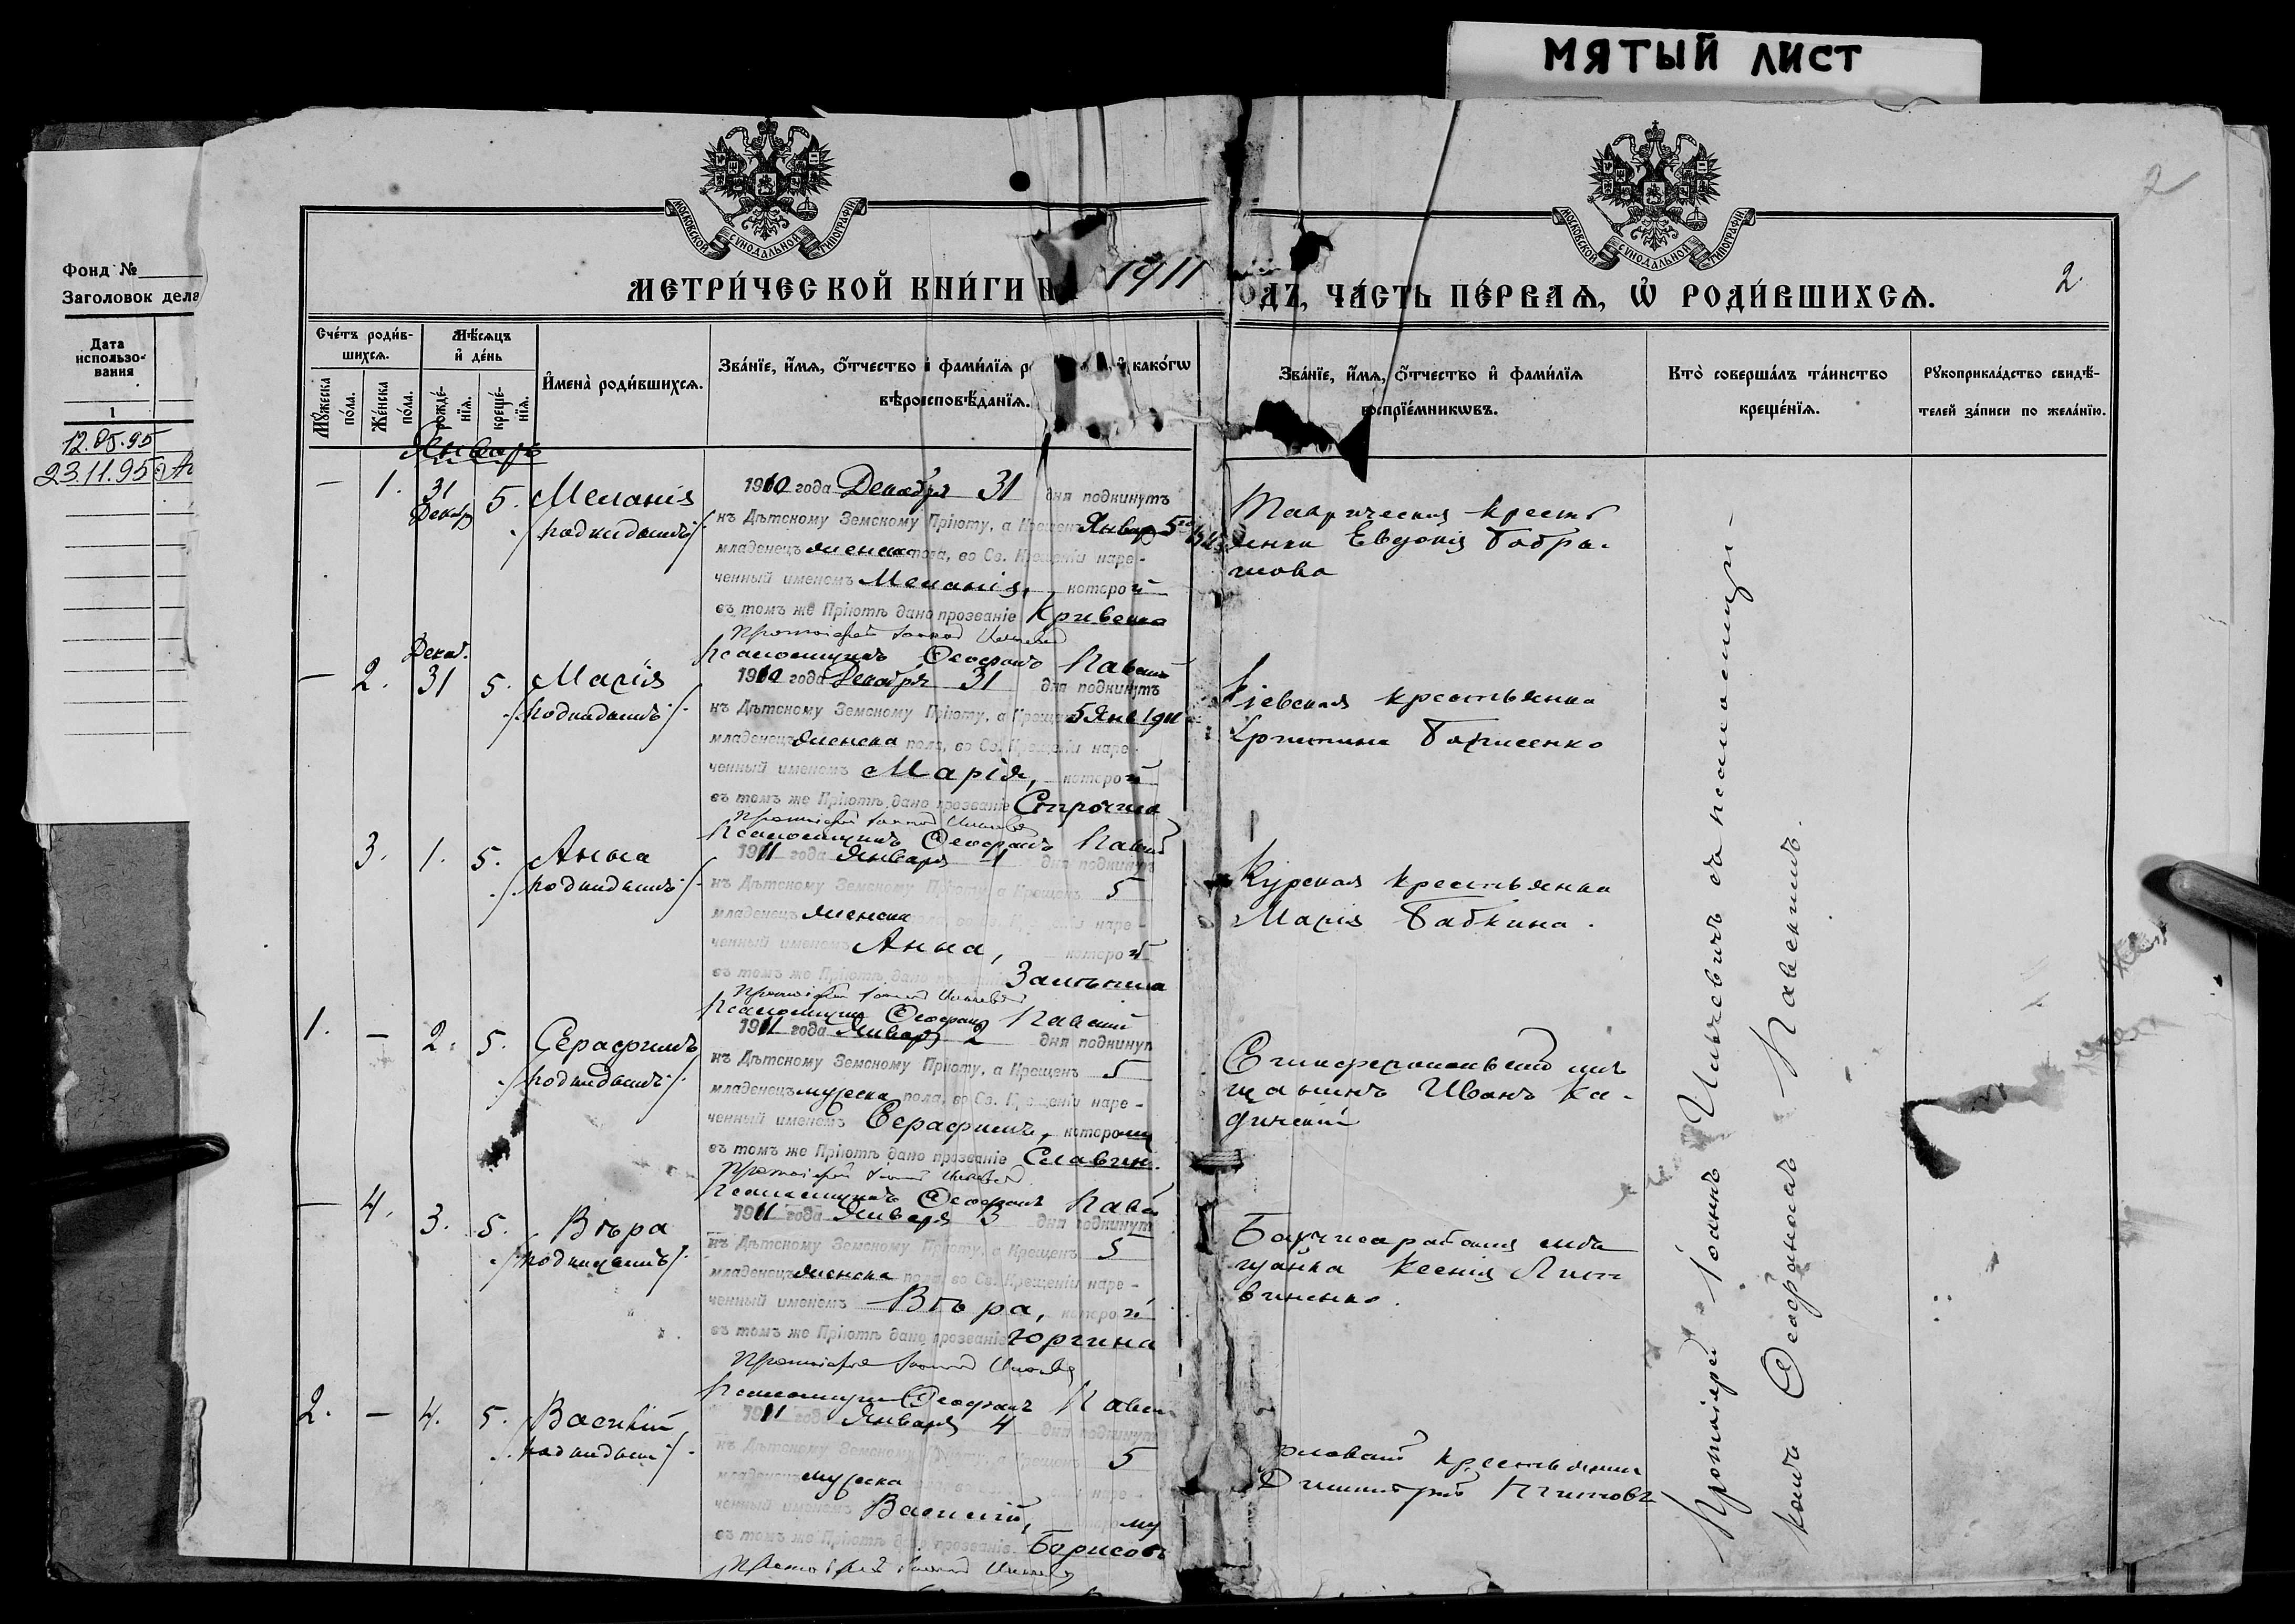 МЯТЫЙ ЛИСТ
Фонд №
Заголовок дела
Дата
использо-
вания
1
12.05.95
23.11.95
МОСКОВСКОЙ СѴНОДАЛЬНОЙ ТИПОГРАФІИ
МОСКОВСКОЙ СѴНОДАЛЬНОЙ ТИПОГРАФІИ
2
МЕТРИ́ЧЕСКОЙ КНИ́ГИ Н 1911 ОДЪ, ЧА́СТЬ ПЕ́РВАѦ, Ѡ҆ РОДИ́ВШИХСѦ.
2.
Сче́тъ роди́в-
шихсѧ.
Мꙋ́жеска пола.
Же́нска по́ла.
Мѣ́сѧцъ
и҆ де́нь
рожде́-
нїѧ.
креще́-
нїѧ.
И҆мена̀ роди́вшихсѧ.
Зва́нїе, и҆́мѧ, ѻ҆́тчество и҆ фами́лїѧ р и҆ како́гѡ
вѣроисповѣ́данїѧ.
Зва́нїе, и҆́мѧ, ѻ҆́тчество и҆ фами́лїѧ
воспрїе́мникѡвъ.
Кто̀ соверша́лъ та́инство
креще́нїѧ.
Рꙋкоприкла́дство свидѣ́-
телей за́писи по жела́нїю.
Январь
— 1. 31 Декабр 5. Меланія
/подкидышъ/
1910 года Декабря 31 дня подкинутъ
къ Дѣтскому Земскому Пріюту, а Крещенъ Январ 5го
младенецъ женска пола, во Св. Крещеніи наре-
ченный именемъ Меланія, которой
въ томъ же Пріютѣ дано прозваніе Кривенко
Протоіерей Іоаннъ
Псаломщикъ Ѳеофанъ
Таврическая кресть
янка Евдокія
— 2. Декаб. 31 5. Марія
/подкидышъ/
1910 года Декабря 31 дня подкинутъ
къ Дѣтскому Земскому Пріюту, а Крещенъ 5 Янв 1911
младенецъ женска пола, во Св. Крещеніи наре-
ченный именемъ Марія, которой
въ томъ же Пріютѣ дано прозваніе
Протоіерей Іоаннъ
Псаломщикъ Ѳеофанъ
Кіевская крестьянка
Христина Борисенко
3. 1. 5. Анна
/подкидышъ/
1911 года Января 1 дня подкинут
къ Дѣтскому Земскому Пріюту, а Крещенъ 5
младенецъ женска пола, во Св. Крещеніи наре-
ченный именемъ Анна, которой
въ томъ же Пріютѣ дано прозваніе
Протоіерей Іоаннъ
Псаломщикъ Ѳеофанъ
Курская крестьянка
Марія Бабкина.
1. — 2. 5. Серафимъ
/подкидышъ/
1911 года Января 2 дня подкинут
къ Дѣтскому Земскому Пріюту, а Крещенъ 5
младенецъ мужеска пола, во Св. Крещеніи наре-
ченный именемъ Серафимъ, которому
въ томъ же Пріютѣ дано прозваніе Славин.
Протоіерей Іоаннъ
Псаломщикъ Ѳеофанъ
Симферопольскій мѣ
щанинъ Иванъ
— 4. 3. 5. Вѣра
/подкидышъ/
1911 года Января 3 дня подкинутъ
къ Дѣтскому Земскому Пріюту, а Крещенъ 5
младенецъ женска пола, во Св. Крещеніи наре-
ченный именемъ Вѣра, которой
въ томъ же Пріютѣ дано прозваніе Юргина
Протоіерей Іоаннъ
Псаломщикъ Ѳеофанъ
Бахчисарайская мѣ
щанка Ксенія Лит
виненко.
2. — 4. 5. Василій
/подкидышъ/
1911 года Января 4 дня подкинутъ
къ Дѣтскому Земскому Пріюту, а Крещенъ 5
младенецъ мужеска пола, во Св. Крещеніи наре-
ченный именемъ Василій, которому
въ томъ же Пріютѣ дано прозваніе Борисовъ
Протоіерей Іоаннъ
крестьянинъ
Димитрій
Протоіерей Іоаннъ съ псаломщи-
комъ Ѳеофаномъ Павскимъ.